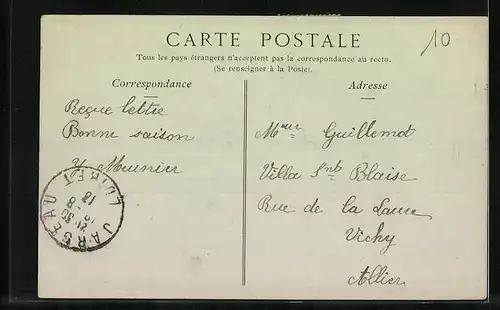 CARTE POSTALE
Tous les pays étrangers n'acceptent pas la correspondance au recto.
(Se renseigner à la Poste).
10
Correspondance
Reçue lettre
Bonne saison
Y Meunier
JARGEAU
LOIRET
Adresse
Mme Guillemot
Villa Snt Blaise
Rue de la Laure
Vichy
Allier